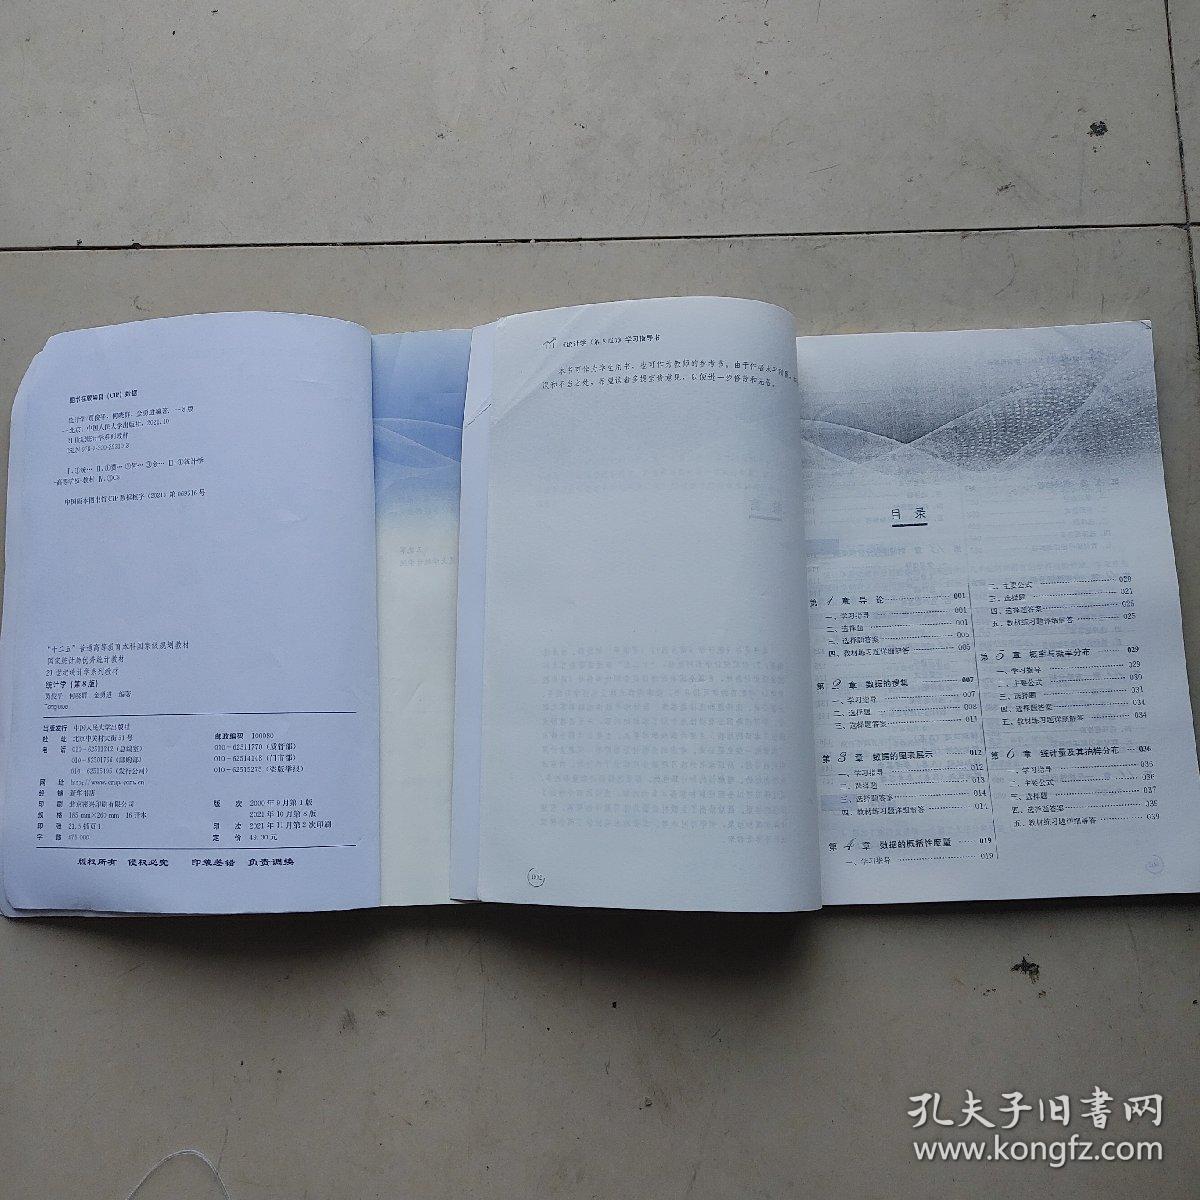 图书在版编目（CIP）数据
统计学/贾俊平，何晓群，金勇进编著．—8版
—北京：中国人民大学出版社，2021.10
21世纪统计学系列教材
中国版本图书馆CIP数据核字（2021）第
"十二五"普通高等教育本科国家级规划教材
国家统计局优秀统计教材
21世纪统计学系列教材
统计学（第8版）
贾俊平 何晓群 金勇进 编著
Tongjixue
出版发行 中国人民大学出版社
社 址 北京中关村大街31号 邮政编码 100080
电 话 010-62511242（总编室） 010-62511770（质管部）
010-62501766（邮购部） 010-62514148（门市部）
010-62515195（发行公司） 010-62515275（盗版举报）
网 址 http://www.crup.com.cn
经 销 新华书店
规 格 185 mm×260 mm 16开本 版 次 2000年9月第1版
2021年10月第8版
印 张 印 次 2021年11月第2次印刷
字 数 定 价 49.00元
版权所有 侵权必究 印装差错 负责调换
《统计学（第8版）》学习指导书
本书可作大学生用书，也可作为教师的参考书。由于作者水平有限，
误和不当之处，希望读者多提宝贵意见，以便进一步修改和完善。
002
目 录
第1章 导 论 001
一、学习指导 001
二、选择题 001
三、选择题答案 005
四、教材练习题详细解答 005
第2章 数据的搜集 007
一、学习指导 007
二、选择题 008
三、选择题答案 011
第3章 数据的图表展示 012
一、学习指导 012
二、选择题 013
三、选择题答案 014
四、教材练习题详细解答 014
第4章 数据的概括性度量 019
一、学习指导 019
二、主要公式 020
三、选择题 021
四、选择题答案 025
五、教材练习题详细解答 025
第5章 概率与概率分布 029
一、学习指导 029
二、主要公式 030
三、选择题 031
四、选择题答案 034
五、教材练习题详细解答 034
第6章 统计量及其抽样分布 036
一、学习指导 036
二、主要公式 036
三、选择题 037
四、选择题答案 039
五、教材练习题详细解答 039
孔夫子旧书网
www.kongfz.com